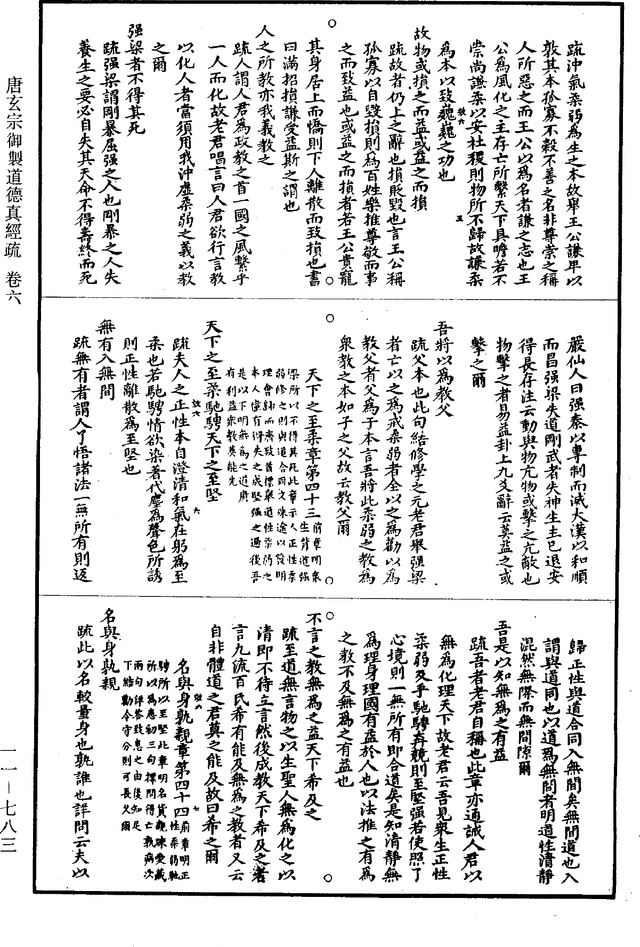 唐玄宗御製道德真經疏 卷六
疏沖氣柔弱爲生之本故舉王公謙卑以
敦其本孤寡不穀不善之名非尊崇之稱
人所惡之而王公以爲名者謙之志也王
公爲風化之主存亡所繫天下具瞻若不
崇尚謙柔以安社稷則物所不歸故謙柔
爲本以致巍巍之功也
故物或損之而益或益之而損
疏故者仍上之辭也損敗毀也言王公稱
孤寡以自毀損則爲百姓樂推尊敬而事
之而致益也或益之而損者若王公貴寵
其身居上而憍則下人離散而致損也書
曰滿招損謙受益斯之謂也
人之所教亦我義教之
疏人謂人君爲政教之首一國之風繫乎
一人而化故老君唱言曰人君欲行言教
以化人者當須用我沖虛柔弱之義以教
之爾
強梁者不得其死
疏強梁謂剛暴屈强之人也剛暴之人失
養生之要必自失其天命不得壽終而死
嚴仙人曰强秦以專制而滅大漢以和順
而昌强梁失道剛武者失神生主已退安
得長存注云動與物亢物或擊之亢敵也
物擊之者易益卦上九爻辭云莫益之或
擊之爾
吾將以爲教父
疏父本也此句結修學之元老君舉强梁
者亡以之爲戒柔弱者全以之爲勸以爲
教父者父爲子本言吾將此柔弱之教爲
衆教之本如子之父故云教父爾
天下之至柔章第四十三
天下之至柔馳騁天下之至堅
疏夫人之正性本自澄清和氣在躬爲至
柔也若馳騁情欲染著代塵爲聲色所誘
則正性離散爲至堅也
無有入無間
疏無有者謂人了悟諸法一無所有則返
歸正性與道合同入無間矣無間道也入
謂與道同也以道爲無間者明道性清靜
混然無際而無間隙爾
吾是以知無爲之有益
疏吾者老君自稱也此章亦通誡人君以
無爲化理天下故老君云吾見衆生正性
柔弱及乎馳騁再競則至堅强若使照了
心境則一無所有即合道矣是知清靜無
爲理身理國有益於人也以法推之有爲
之教不及無爲之有益也
不言之教無爲之益天下希及之
疏至道無言物之以生聖人無爲化之以
清即不待立言然後成教天下希及之者
言九流百氏希有能及無爲之教者又云
自非體道之君莫之能及故曰希之爾
名與身孰親章第四十四
名與身孰親
疏此以名較量身也孰誰也詳問云夫以
一一—七八三